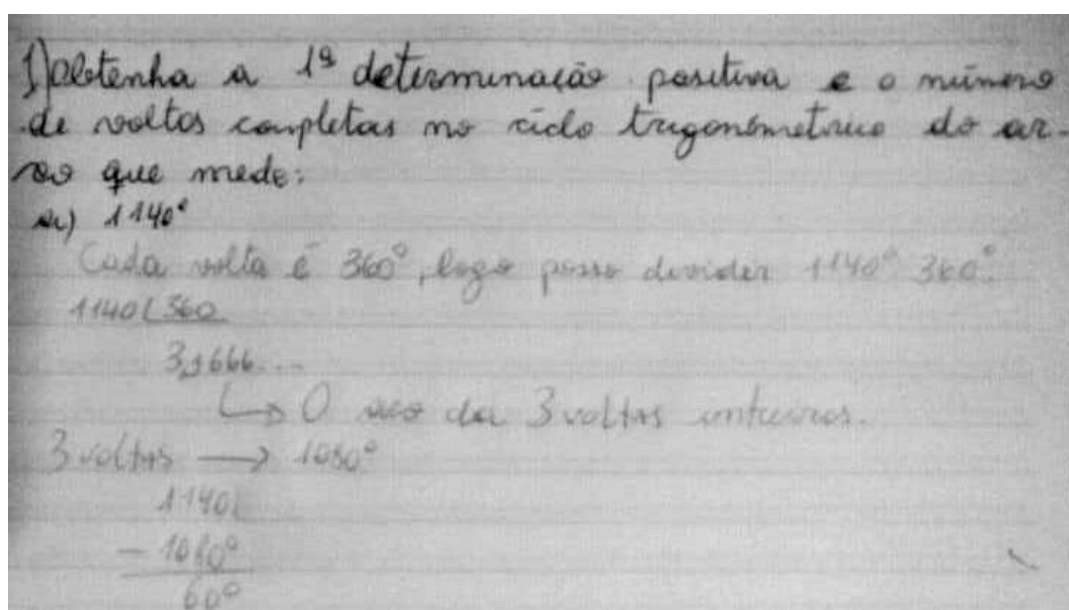 1) Obtenha a 1ª determinação positiva e o número
de voltas completas no ciclo trigonométrico do ar-
co que mede:
a) 1140°
Cada volta é 360°, logo posso devider 1140° 360°.
1140 360
3,1666...
↳ O arco da 3 voltas inteiras.
3 voltas → 1080°
1140
- 1080°
60°